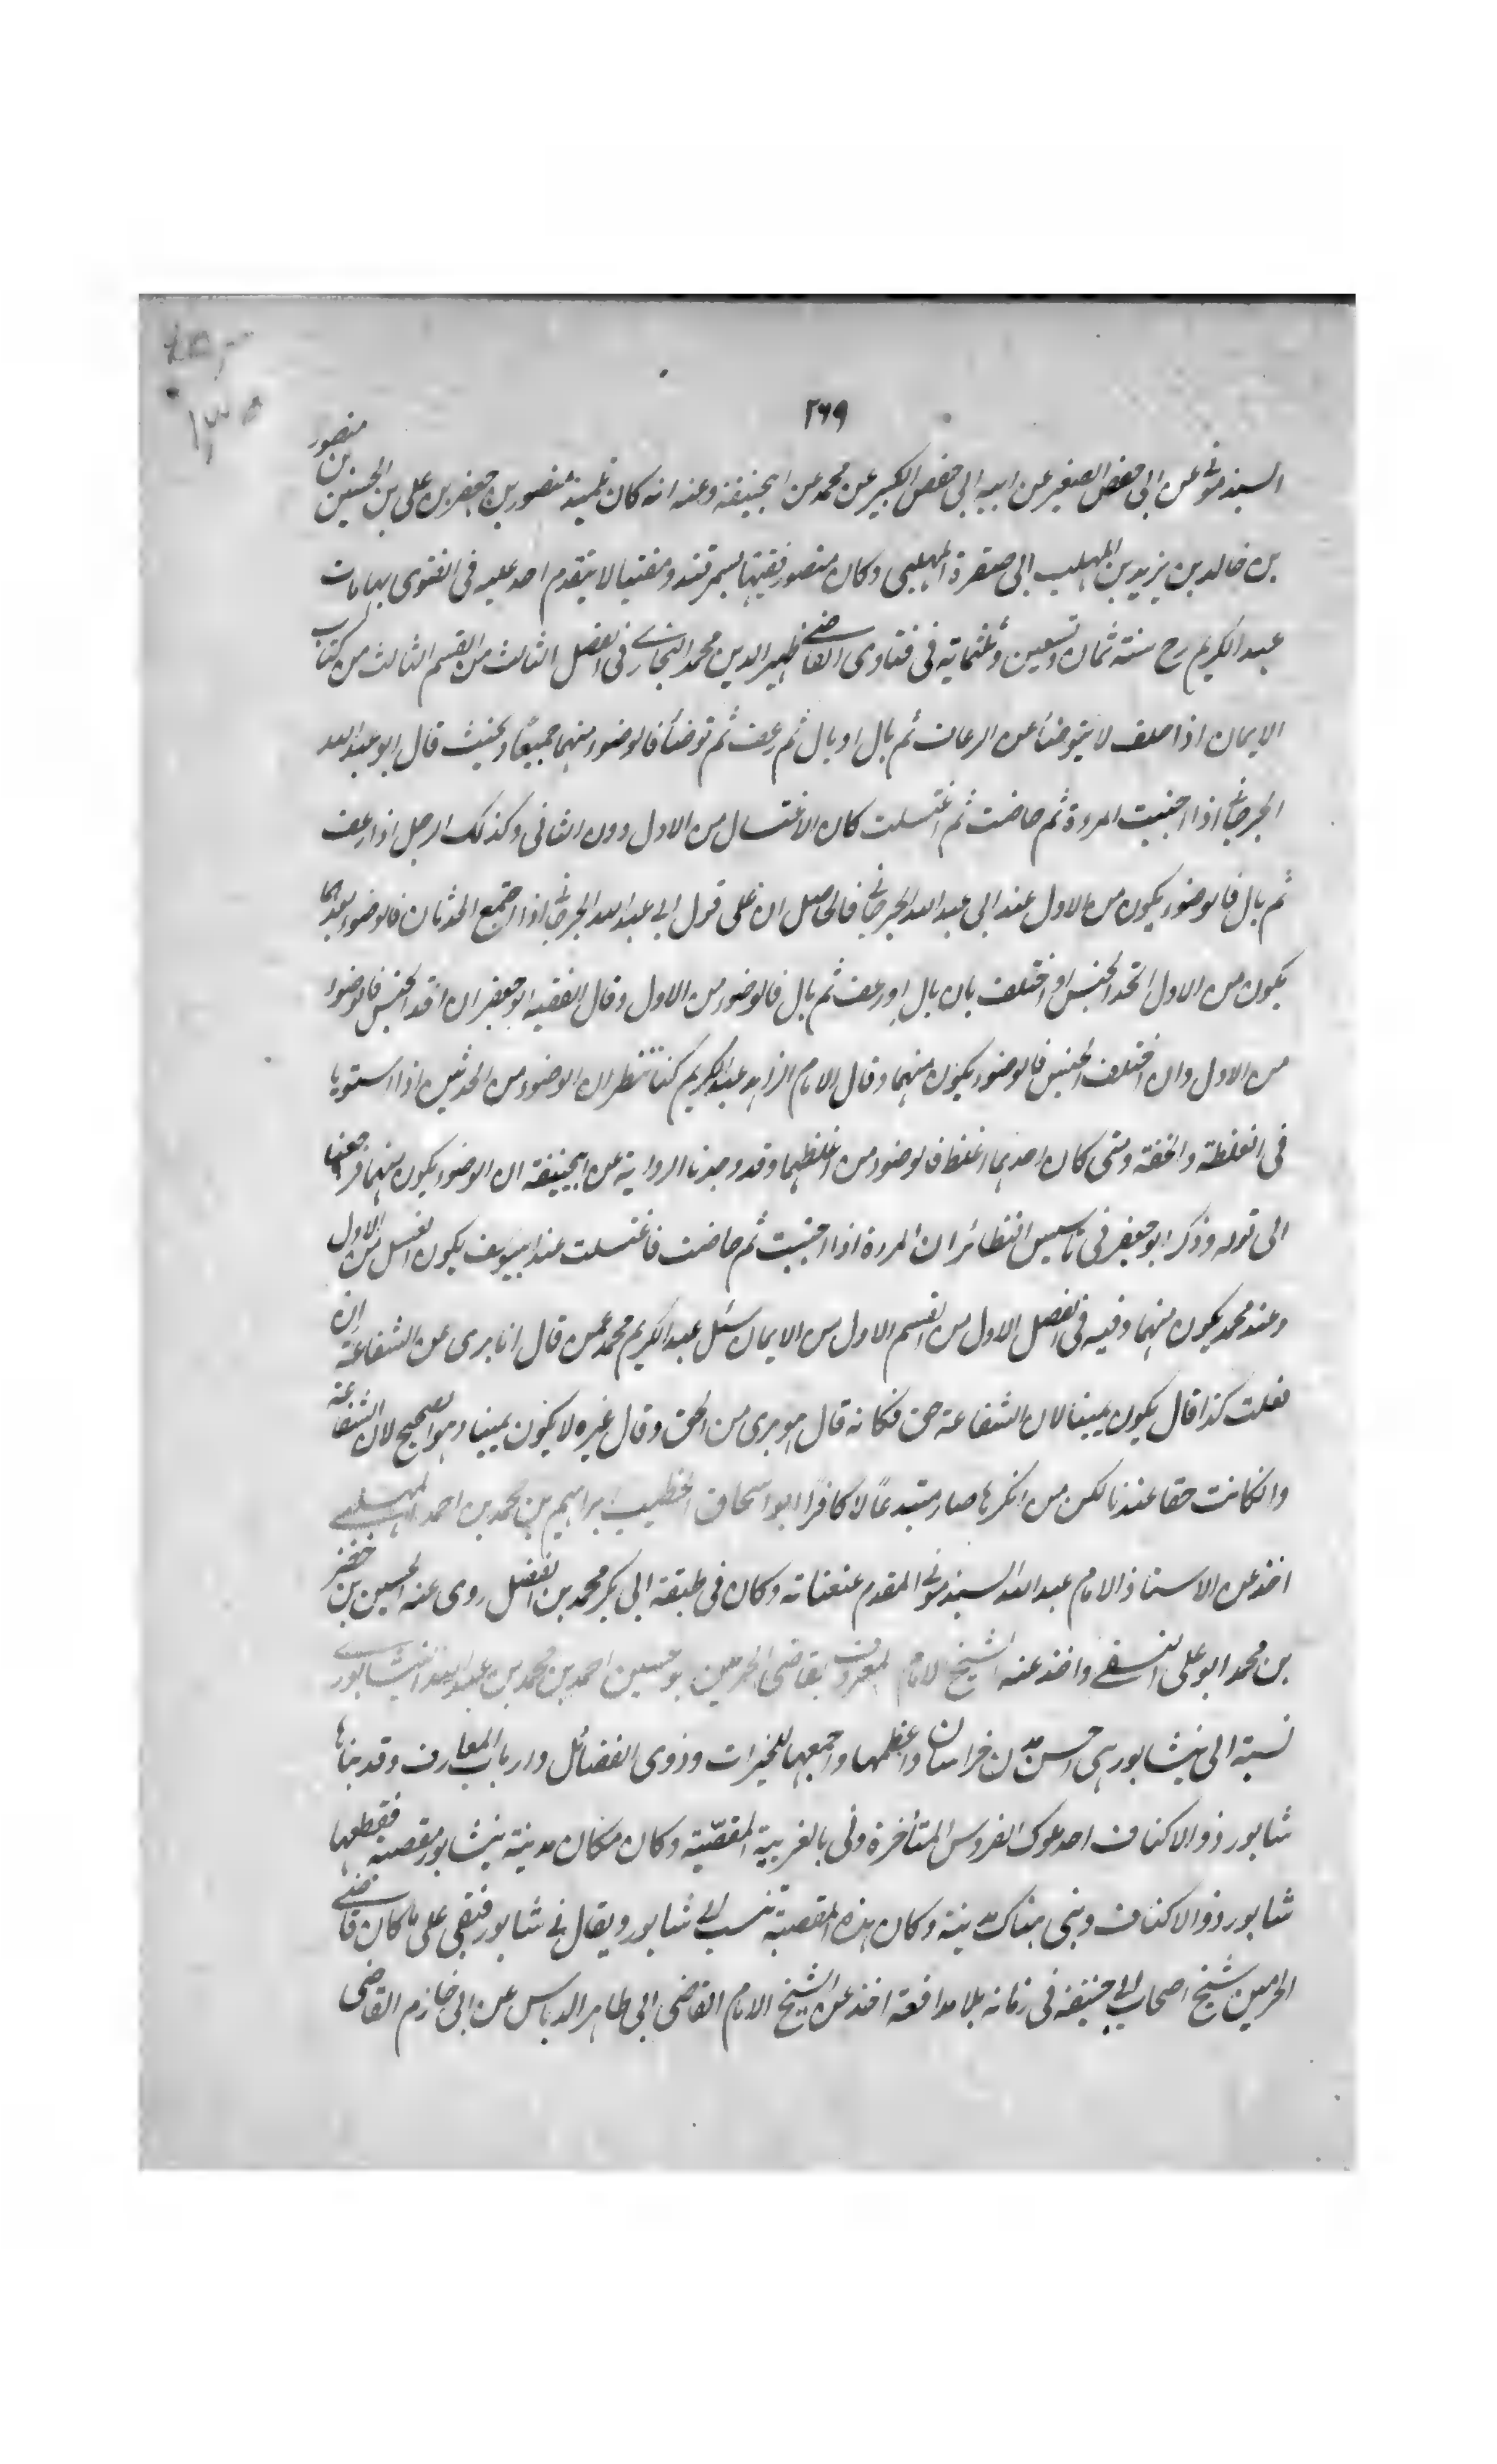 ٢٦٩
السبذموني عن ابى حفص الصغير عن ابيه ابى حفص الكبير عن محمد عن ابيحنيفة وعنه انه كان تلميذ منصور بن جعفر بن على بن الحسين بن منصور
بن خالد بن يزيد بن المهلب ابى صفرة المهلبى وكان منصور فقيها بسمرقند ومفتيا لا يتقدم احد عليه فى الفتوى بها مات
عبد الكريم رح سنة ثمان وتسعين وثلثماية فى فتاوى القاضي ظهير الدين محمد البخاري فى الفصل الثالث من القسم الثالث من كتاب
الايمان اذا حلف لا يتوضأ من الرعاف ثم بال او بال ثم رعف ثم توضأ فالوضوء منهما جميعًا ويحنث قال ابو عبد الله
الجرجاني اذا اجنبت المرءة ثم حاضت ثم اغتسلت كان الاغتسال من الاول دون الثانى وكذلك الرجل اذا رعف
ثم بال فالوضوء يكون من الاول عند ابى عبد الله الجرجاني فالحاصل ان على قول ابى عبد الله الجرجاني اذا اجتمع الحدثان فالوضوء بعدهما
يكون من الاول اتحد الجنس او اختلف بان بال او رعف ثم بال فالوضوء من الاول وقال الفقيه ابو جعفر ان اتحد الجنس فالوضوء
من الاول وان اختلف الجنس فالوضوء يكون منهما وقال الامام الزاهد عبد الكريم كنا ننظر ان الوضوء من الحدثين اذا استويا
فى الغلظة والخفة ومتى كان احدهما اغلظ فالوضوء من اغلظهما وقد وجدنا الرواية عن ابيحنيفة ان الوضوء يكون منهما فرجعنا
الى قوله وذكر ابو جعفر فى تاسيس النظائر ان المرءة اذا اجنبت ثم حاضت فاغتسلت عند ابيوسف يكون الغسل من الاول
وعند محمد يكون منهما وفيه فى الفصل الاول من القسم الاول من الايمان سئل عبد الكريم محمد عمن قال انا برى عن الشفاعة ان
فعلت كذا قال يكون يمينا لان الشفاعة حق فكانه قال هو برى من الحق وقال غيره لا يكون يمينا وهو الصحيح لان الشفاعة
وانكانت حقا عندنا لكن من انكرها صار مبتدعًا لا كافرًا ابو اسحاق الخطيب ابراهيم بن محمد بن احمد المهلبي
اخذ عن الاستاذ الامام عبد الله السبذموني المقدم عنعناته وكان فى طبقة ابى بكر محمد بن الفضل روى عنه الحسين بن خضر
بن محمد ابو على النسفي واخذ عنه الشيخ الامام المعروف بقاضى الحرمين بو حسين احمد بن محمد بن عبد الله النيشابوري
نسبة الى نيشابور هى احسن مدن خراسان واعظمها واجمعها للخيرات وذوى الفضائل وارباب المعارف وقد بناها
شابور ذو الاكتاف احد ملوك الفرس المتأخرة ونى بالغربية المقصّبة وكان مكان مدينة نيشابور مقصبة فقطعها
شابور ذو الاكتاف وبنى هناك مدينة وكان هذه المقصبة تنسب الى شابور ويقال نے شابور فبقى على ما كان قاضي
الحرمين شيخ اصحاب ابي حنيفة فى زمانه بلا مدافعة اخذ عن الشيخ الامام القاضى ابى طاهر الدباس عن ابى خازم القاضى